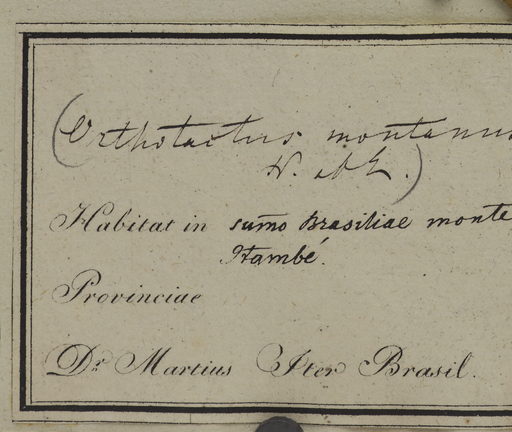 (Orthotactus montanus
N. ab E.)
Habitat in sum̄o Brasiliae monte
Itambé.
Provinciae
Dr. Martius Iter Brasil.